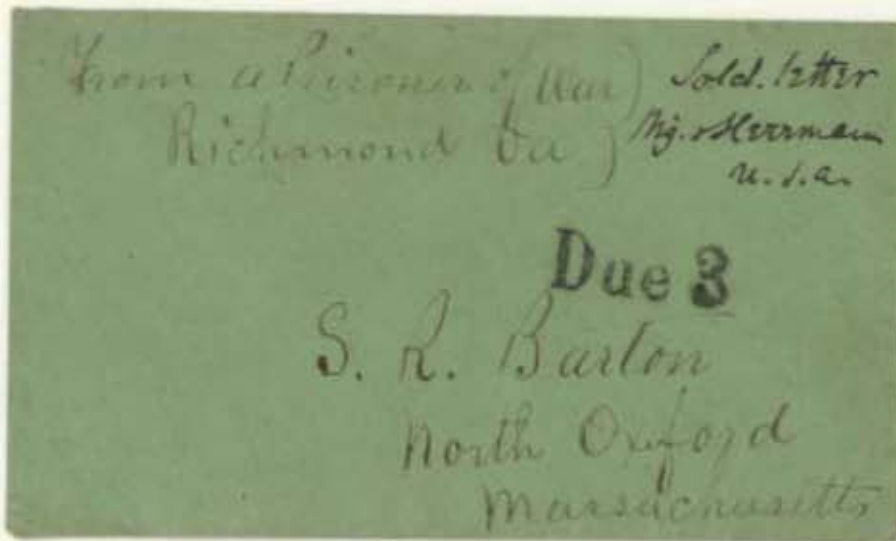 From a Prisoner of War)
Richmond Va )
Sold. letter
Herrmann
U.S.A.
Due 3
S. R. Barton
North Oxford
Massachusetts